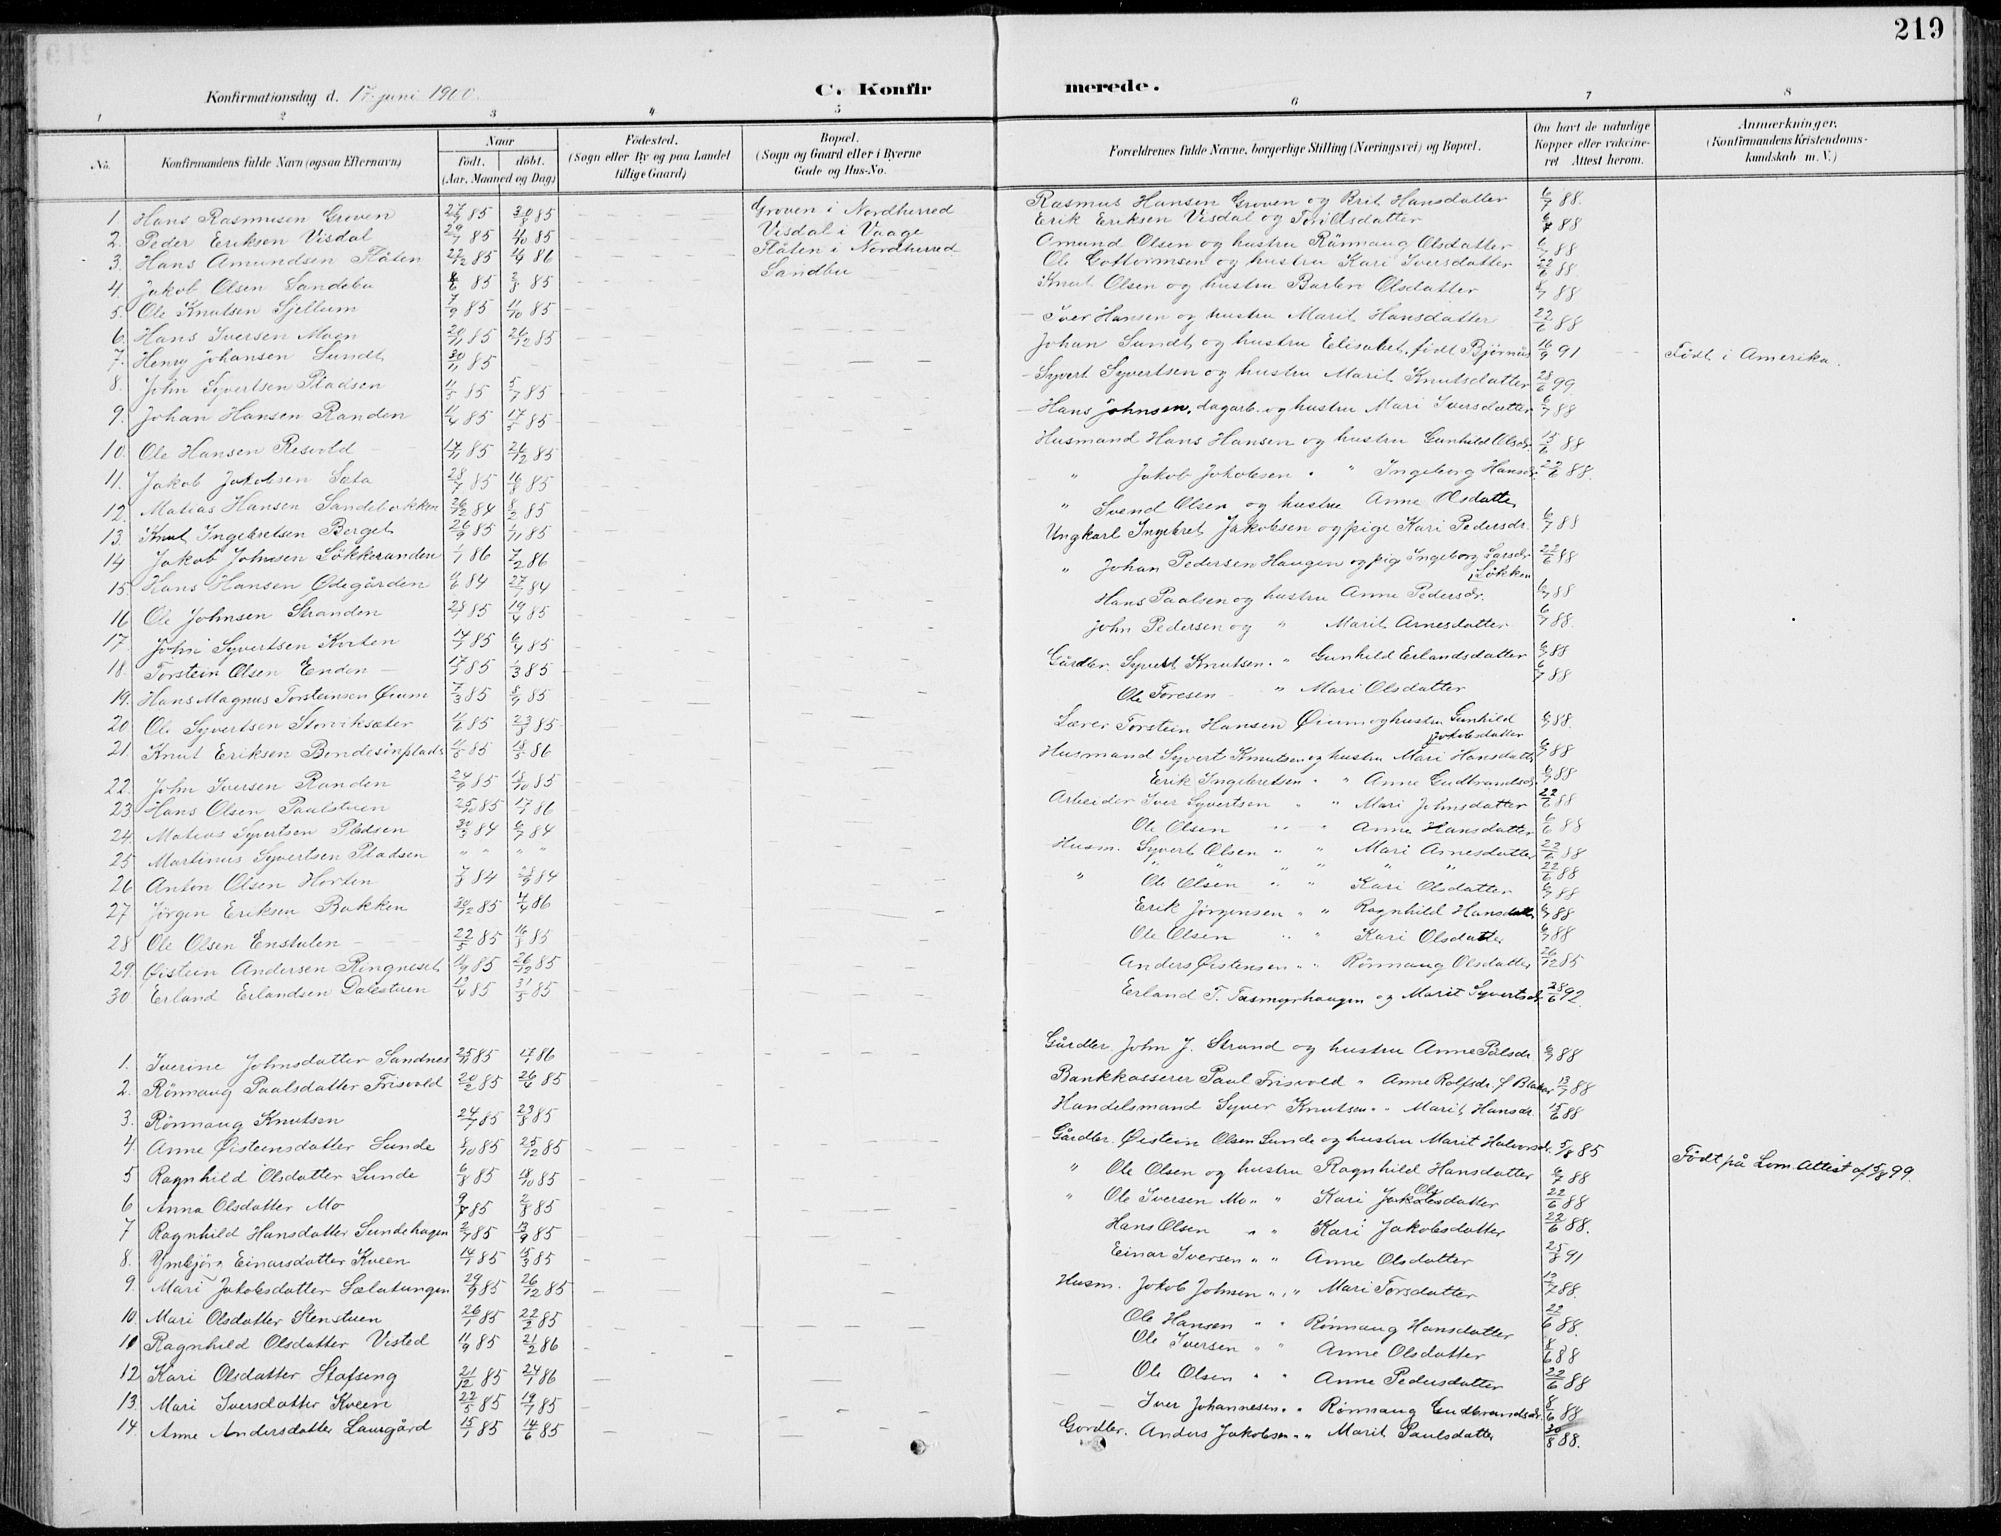 219
Konfirmationsdag d. 17. juni 1900.
C. Konfirmerede.
1 2 3 4 5 6 7 8
No. Konfirmandens fulde Navn (ogsaa Efternavn) Naar födt. döbt. (Aar, Maaned og Dag) Födested. (Sogn eller By og paa Landet tillige Gaard) Bopæl. (Sogn og Gaard eller i Byerne Gade og Hus-No. Forældrenes fulde Navne, borgerlige Stilling (Næringsvei) og Bopæl. Om havt de naturlige Kopper eller vakcineret Attest herom. Anmærkninger. (Konfirmandens Kristendomskundskab m. V.)
1. Hans Rasmusen Groven 85 30/8 85 Groven i Nordherred Rasmus Hansen Groven og Brit Hansdatter 6/7 88.
2. Peder Eriksen Visdal 29/7 85 4/10 85 Visdal i Vaage Erik Eriksen Visdal og 6/7 88
3. Hans Amundsen Flåten 27/12 85 86 Flåten i Nordherred Amund Olsen og hustru Rönnaug Olsdatter 6/7 88
4. Jakob Olsen Sandebu 85 2/8 85 Sandbu Ole Gottormsen og hustru Kari Iversdatter 22/6 88
5. Ole Knutsen Sjellum 7/9 85 11/10 85 Knut Olsen og hustru Barbro Olsdatter 88
6. Hans Iversen Moen 20/11 85 26/12 85 Iver Hansen og hustru Marit Hansdatter 22/6 88
7. Henry Johansen Sundt 30/11 85 Johan Sundt og hustru Elisabet, födt Bjørnås 16/9 91 Födt i Amerika.
8. John Syvertsen Pladsen 11/5 85 5/7 85 Syvert Syvertsen og hustru Marit Knutsdatter 28/6 99
9. Johan Hansen Randen 11/4 85 17/5 85 Hans Johnsen, dagarb. og hustru Mari Iversdatter 6/7 88
10. Ole Hansen Resvold 17/11 85 26/12 85 Husmand Hans Hansen og hustru Gunhild Olsdr. 15/6 88
11. Jakob Jakobsen Sata 28/7 85 16/8 85 " Jakob Jakobsen " " Ingeborg Hansdr. 22/6 88.
12. Matias Hansen Sandebakken 26/12 84 85 " Svend Olsen og hustru Anne Olsdatter
13. Knut Ingebretsen Berget 26/9 85 1/11 85 Ungkarl Ingebret Jakobsen og pige Kari Pedersdr. 6/7 88
14 Jakob Johnsen Løkkeranden 1/1 86 7/2 86 " Johan Pedersen Haugen og pig Ingeborg Larsdr. Løkken 22/6 88
15. Hans Hansen Ødegården 84 27/7 84 Hans Paalsen og hustru Anne Pedersdr. 6/7 88
16 Ole Johnsen Stranden 85 19/4 85 John Pedersen og " Marit Arnesdatter 6/7 88.
17. John Syvertsen Kviten 85 6/4 85 Gårdbr. Syvert Knutsen " " Gunhild Erlandsdatter 6/7 88
18. Torstein Olsen Enden 85 1/3 85 Ole Toresen " Mari Olsdatter 6/7 88
19. Hans Magnus Torsteinsen Øium 7/3 85 85 Lærer Torstein Hansen Øium og hustru Gunhild Jakobsdatter 6/7 88.
20 Ole Syvertsen Storviksæter 11/6 85 23/8 85 Husmand Syvert Knutsen og hustru Mari Hansdatter 6/7 88
21. Knut Eriksen Bondesinplads 85 86 Erik Ingebretsen " " Anne Gudbrandsdr. 6/7 88
22. John Iversen Randen 24/9 85 18/10 85 Arbeider Iver Syvertsen " " Mari Johnsdatter 22/6 88
23 Hans Olsen Paalstuen 25/10 85 17/1 86 Ole Olsen " " Anne Hansdatter 6/6 88
24. Matias Syvertsen Pladsen 30/3 84 6/7 84 Husm. Syvert Olsen " " Mari Arnesdatter 22/6 88
25 Martinus Syvertsen Pladsen " " " " " " " " " " 22/6 88
26 Anton Olsen Horten 7/8 84 84 " Ole Olsen " " Kari Olsdatter 6/7 88
27 Jörgen Eriksen Bakken 30/12 85 4/4 86 Erik Jörgensen " " Ragnhild Hansdatt. 6/7 88
28 Ole Olsen Enstulen 22/5 85 16/8 85 Ole Olsen " " Kari Olsdatter 6/7 88
29. Øistein Andersen Ringneset 11/9 85 26/12 85 Anders Øistensen " " Rönnaug Olsdatter 26/12 85
30 Erland Erlandsen Dalestuen 13/4 85 31/5 85 Erland T. Tasmyrhaugen og Marit Syvertsdr. 28/6 92.
1. Iverine Johnsdatter Sandnes 25/11 85 17/1 86 Gårdbr. John J. Strand og hustru Anne Pålsdr. 6/7 88
2. Rönnaug Paalsdatter Frisvold 20/2 85 26/4 85 Bankkasserer Paul Frisvold " Anne Rolfsdr. f Blakar 13/7 88
3. Rönnaug Knutsen 24/7 85 23/8 85 Handelsmand Syver Knutsen " " Marit Hansdr. 15/6 88
4. Anne Øistensdatter Sunde 8/10 85 25/12 85 Gårdbr. Øistein Olsen Sunde og hustru Marit Halvorsdr. 5/8 85
5 Ragnhild Olsdatter Sunde 6/8 85 18/10 85 " Ole Olsen og hustru Ragnhild Hansdatter 6/7 88 Födt på Lom. Attest af 5/8 99.
6 Anna Olsdatter Mo 85 2/8 85 " Ole Iversen Mo " " Kari Jakobsdatter Ols 22/6 88
7 Ragnhild Hansdatter Sundehagen 2/7 85 13/9 85 Hans Olsen " " Kari Jakobsdatter 22/6 88.
8. Ymbjör Einarsdatter Kveen 14/1 85 15/3 85 Einar Iversen " " Anne Olsdatter 25/8 91
9. Mari Jakobsdatter Sælatungen 29/9 85 26/12 85 Husm. Jakob Johnsen " " Mari Torsdatter 12/7 88.
10. Mari Olsdatter Stenstuen 26/1 85 22/2 85 Ole Hansen " " Rönnaug Hansdatter 22/6 88.
10 Ragnhild Olsdatter Visted 11/9 85 21/2 86 Ole Iversen " " Anne Olsdatter 8/6 88
12 Kari Olsdatter Stafseng 21/12 85 24/1 86 Ole Olsen " " Anne Pedersdatter 22/6 88
13. Mari Iversdatter Kveen 22/5 85 19/7 85 Iver Johannesen " Rönnaug Gudbrandsdr. 8/6 88
14. Anne Andersdatter Laurgård 15/1 85 14/6 85 Gardbr. Anders Jakobsen " " Marit Paulsdatter 30/8 88.